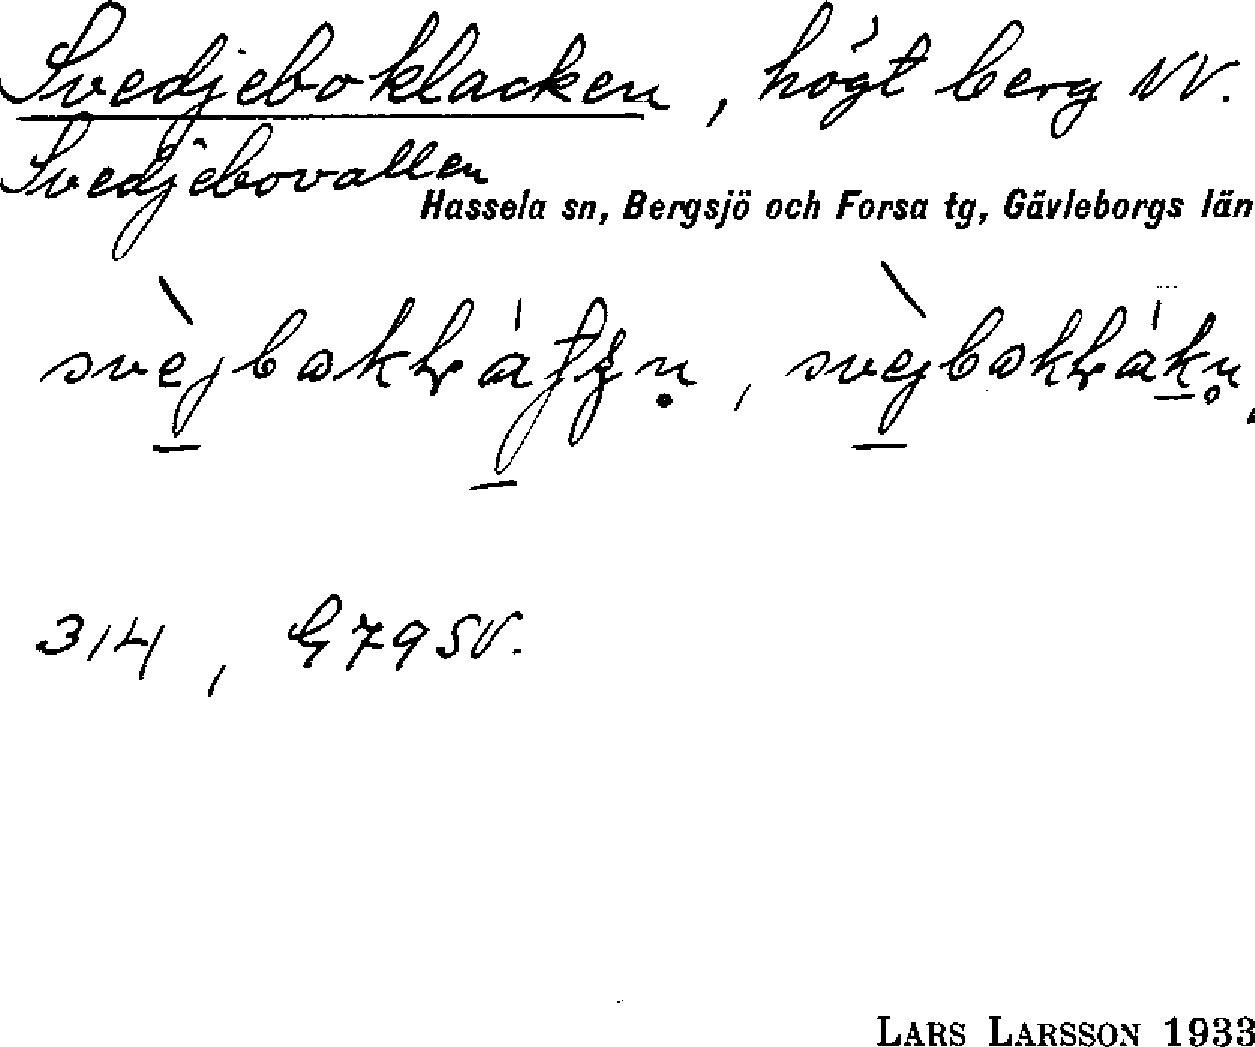 Svedjeboklacken, högt berg NV.
Svedjebovallen
Hassela sn, Bergsjö och Forsa tg, Gävleborgs län
314, G79SV.
LARS LARSSON 1933